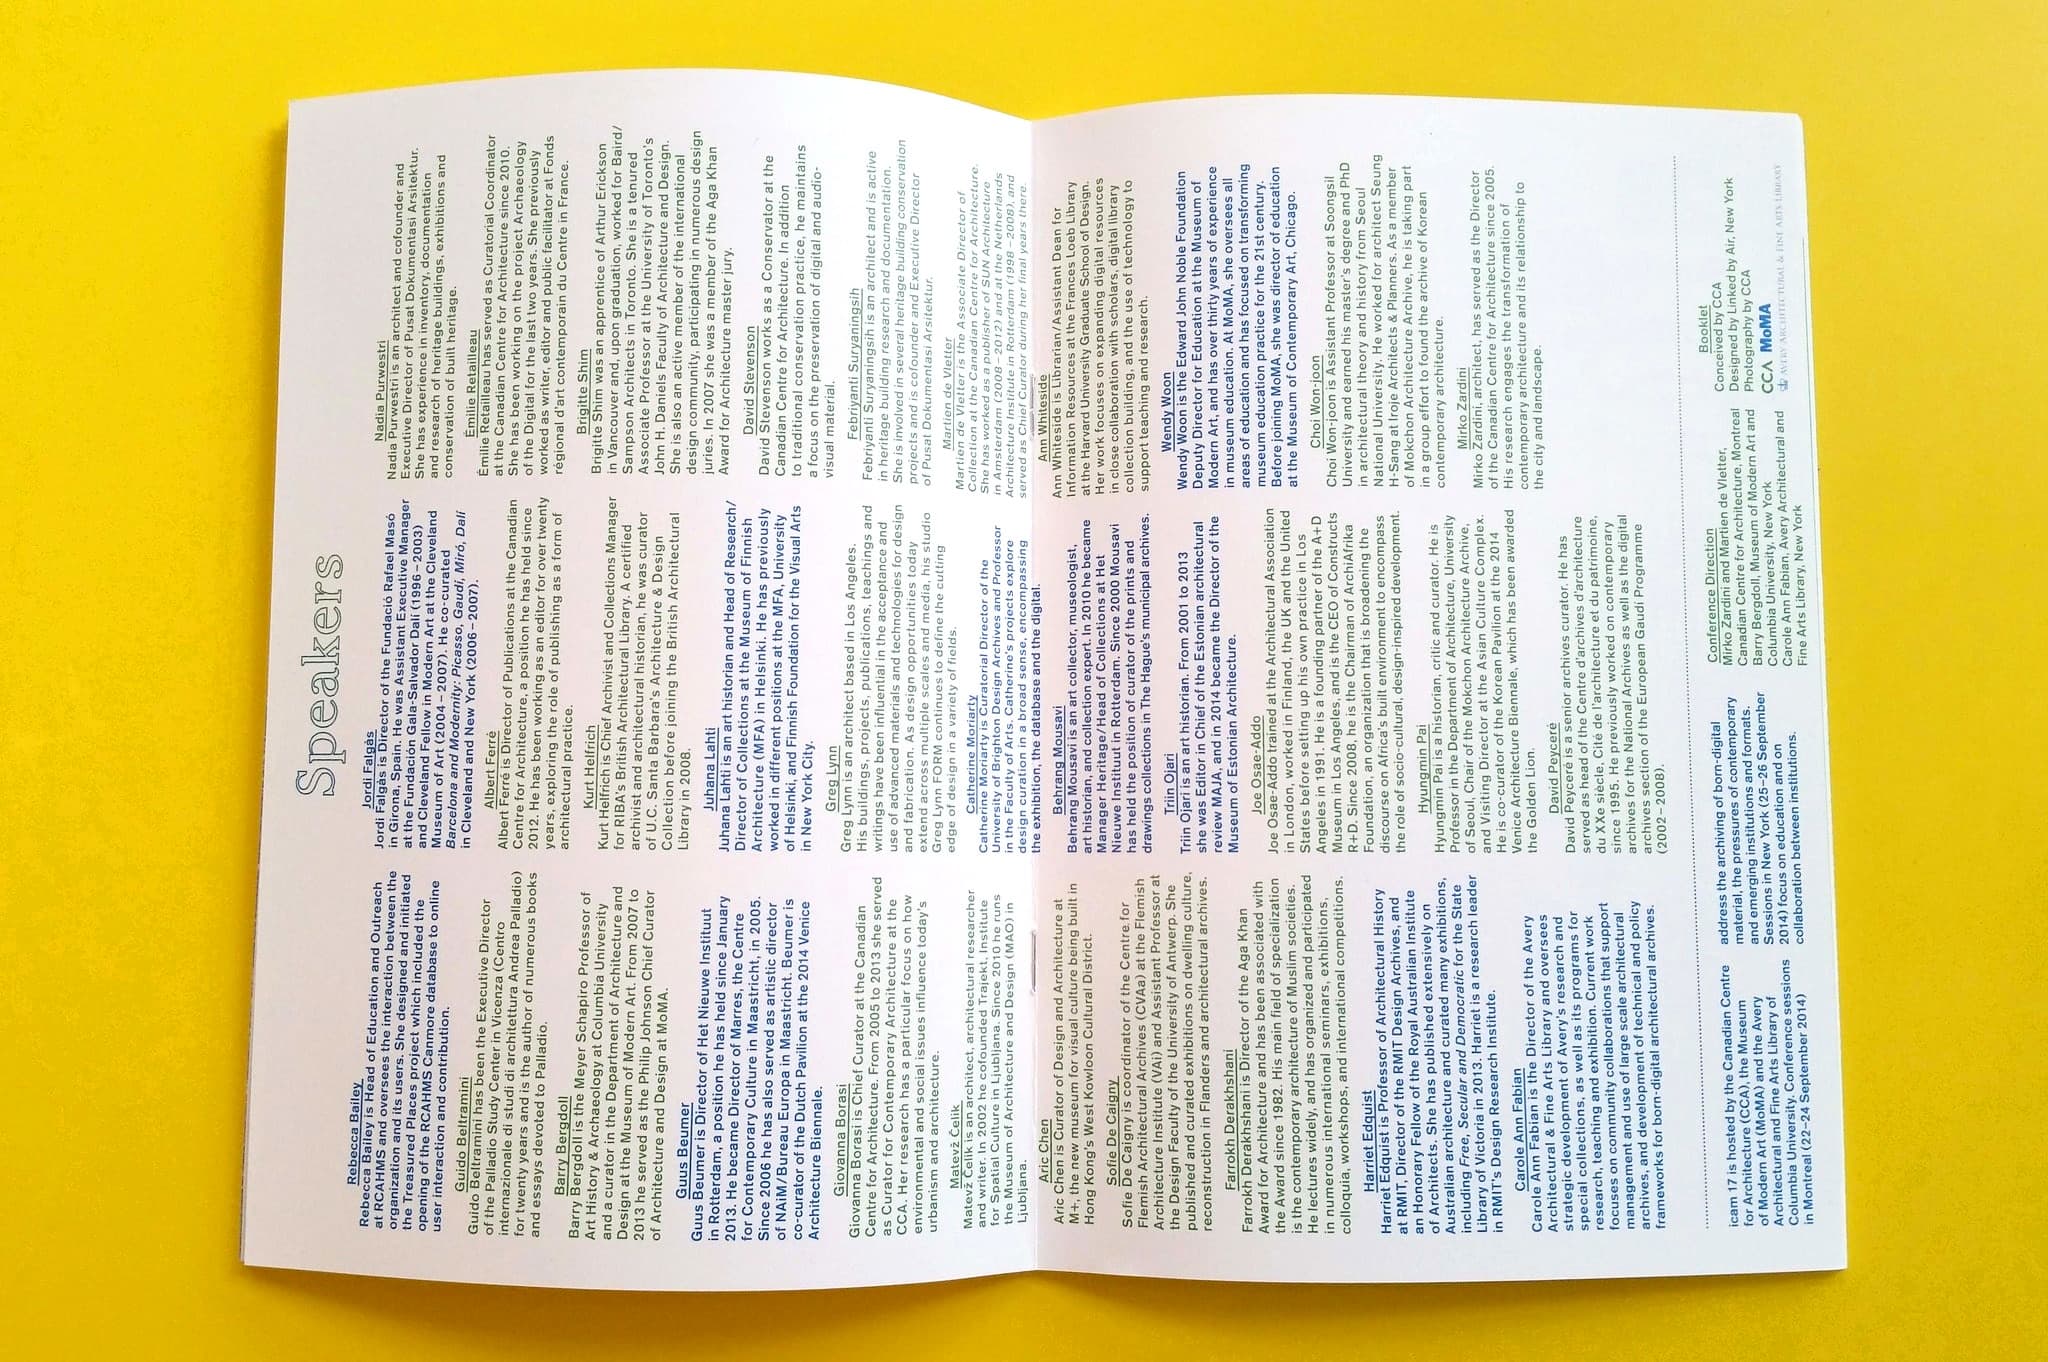 Speakers
Rebecca Bailey
Rebecca Bailey is Head of Education and Outreach
at RCAHMS and oversees the interaction between the
organization and its users. She designed and initiated
the Treasured Places project which included the
opening of the RCAHMS Canmore database to online
user interaction and contribution.
Guido Beltramini
Guido Beltramini has been the Executive Director
of the Palladio Study Center in Vicenza (Centro
internazionale di studi di architettura Andrea Palladio)
for twenty years and is the author of numerous books
and essays devoted to Palladio.
Barry Bergdoll
Barry Bergdoll is the Meyer Schapiro Professor of
Art History & Archaeology at Columbia University
and a curator in the Department of Architecture and
Design at the Museum of Modern Art. From 2007 to
2013 he served as the Philip Johnson Chief Curator
of Architecture and Design at MoMA.
Guus Beumer
Guus Beumer is Director of Het Nieuwe Instituut
in Rotterdam, a position he has held since January
2013. He became Director of Marres, the Centre
for Contemporary Culture in Maastricht, in 2005.
Since 2006 he has also served as artistic director
of NAiM/Bureau Europa in Maastricht. Beumer is
co-curator of the Dutch Pavilion at the 2014 Venice
Architecture Biennale.
Giovanna Borasi
Giovanna Borasi is Chief Curator at the Canadian
Centre for Architecture. From 2005 to 2013 she served
as Curator for Contemporary Architecture at the
CCA. Her research has a particular focus on how
environmental and social issues influence today's
urbanism and architecture.
Matevž Čelik
Matevž Čelik is an architect, architectural researcher
and writer. In 2002 he cofounded Trajekt, Institute
for Spatial Culture in Ljubljana. Since 2010 he runs
the Museum of Architecture and Design (MAO) in
Ljubljana.
Jordi Falgàs
Jordi Falgàs is Director of the Fundació Rafael Masó
in Girona, Spain. He was Assistant Executive Manager
at the Fundación Gala-Salvador Dalí (1996–2003)
and Cleveland Fellow in Modern Art at the Cleveland
Museum of Art (2004–2007). He co-curated
Barcelona and Modernity: Picasso, Gaudí, Miró, Dalí
in Cleveland and New York (2006–2007).
Albert Ferré
Albert Ferré is Director of Publications at the Canadian
Centre for Architecture, a position he has held since
2012. He has been working as an editor for over twenty
years, exploring the role of publishing as a form of
architectural practice.
Kurt Helfrich
Kurt Helfrich is Chief Archivist and Collections Manager
for RIBA's British Architectural Library. A certified
archivist and architectural historian, he was curator
of U.C. Santa Barbara's Architecture & Design
Collection before joining the British Architectural
Library in 2008.
Juhana Lahti
Juhana Lahti is an art historian and Head of Research/
Director of Collections at the Museum of Finnish
Architecture (MFA) in Helsinki. He has previously
worked in different positions at the MFA, University
of Helsinki, and Finnish Foundation for the Visual Arts
in New York City.
Greg Lynn
Greg Lynn is an architect based in Los Angeles.
His buildings, projects, publications, teachings and
writings have been influential in the acceptance and
use of advanced materials and technologies for design
and fabrication. As design opportunities today
extend across multiple scales and media, his studio
Greg Lynn FORM continues to define the cutting
edge of design in a variety of fields.
Catherine Moriarty
Catherine Moriarty is Curatorial Director of the
University of Brighton Design Archives and Professor
in the Faculty of Arts. Catherine's projects explore
design curation in a broad sense, encompassing
the exhibition, the database and the digital.
Nadia Purwestri
Nadia Purwestri is an architect and cofounder and
Executive Director of Pusat Dokumentasi Arsitektur.
She has experience in inventory, documentation
and research of heritage buildings, exhibitions and
conservation of built heritage.
Émilie Retailleau
Émilie Retailleau has served as Curatorial Coordinator
at the Canadian Centre for Architecture since 2010.
She has been working on the project Archaeology
of the Digital for the last two years. She previously
worked as writer, editor and public facilitator at Fonds
régional d'art contemporain du Centre in France.
Brigitte Shim
Brigitte Shim was an apprentice of Arthur Erickson
in Vancouver and, upon graduation, worked for Baird/
Sampson Architects in Toronto. She is a tenured
Associate Professor at the University of Toronto's
John H. Daniels Faculty of Architecture and Design.
She is also an active member of the international
design community, participating in numerous design
juries. In 2007 she was a member of the Aga Khan
Award for Architecture master jury.
David Stevenson
David Stevenson works as a Conservator at the
Canadian Centre for Architecture. In addition
to traditional conservation practice, he maintains
a focus on the preservation of digital and audio-
visual material.
Febriyanti Suryaningsih
Febriyanti Suryaningsih is an architect and is active
in heritage building research and documentation.
She is involved in several heritage building conservation
projects and is cofounder and Executive Director
of Pusat Dokumentasi Arsitektur.
Martien de Vletter
Martien de Vletter is the Associate Director of
Collection at the Canadian Centre for Architecture.
She has worked as a publisher of SUN Architecture
in Amsterdam (2008–2012) and at the Netherlands
Architecture Institute in Rotterdam (1998–2008), and
served as Chief Curator during her final years there.
Aric Chen
Aric Chen is Curator of Design and Architecture at
M+, the new museum for visual culture being built in
Hong Kong's West Kowloon Cultural District.
Sofie De Caigny
Sofie De Caigny is coordinator of the Centre for
Flemish Architectural Archives (CVAa) at the Flemish
Architecture Institute (VAi) and Assistant Professor at
the Design Faculty of the University of Antwerp. She
published and curated exhibitions on dwelling culture,
reconstruction in Flanders and architectural archives.
Farrokh Derakhshani
Farrokh Derakhshani is Director of the Aga Khan
Award for Architecture and has been associated with
the Award since 1982. His main field of specialization
is the contemporary architecture of Muslim societies.
He lectures widely, and has organized and participated
in numerous international seminars, exhibitions,
colloquia, workshops, and international competitions.
Harriet Edquist
Harriet Edquist is Professor of Architectural History
at RMIT, Director of the RMIT Design Archives, and
an Honorary Fellow of the Royal Australian Institute
of Architects. She has published extensively on
Australian architecture and curated many exhibitions,
including Free, Secular and Democratic for the State
Library of Victoria in 2013. Harriet is a research leader
in RMIT's Design Research Institute.
Carole Ann Fabian
Carole Ann Fabian is the Director of the Avery
Architectural & Fine Arts Library and oversees
strategic development of Avery's research and
special collections, as well as its programs for
research, teaching and exhibition. Current work
focuses on community collaborations that support
management and use of large scale architectural
archives, and development of technical and policy
frameworks for born-digital architectural archives.
Behrang Mousavi
Behrang Mousavi is an art collector, museologist,
art historian, and collection expert. In 2010 he became
Manager Heritage/Head of Collections at Het
Nieuwe Instituut in Rotterdam. Since 2000 Mousavi
has held the position of curator of the prints and
drawings collections in The Hague's municipal archives.
Triin Ojari
Triin Ojari is an art historian. From 2001 to 2013
she was Editor in Chief of the Estonian architectural
review MAJA, and in 2014 became the Director of the
Museum of Estonian Architecture.
Joe Osae-Addo
Joe Osae-Addo trained at the Architectural Association
in London, worked in Finland, the UK and the United
States before setting up his own practice in Los
Angeles in 1991. He is a founding partner of the A+D
Museum in Los Angeles, and is the CEO of Constructs
R+D. Since 2008, he is the Chairman of ArchiAfrika
Foundation, an organization that is broadening the
discourse on Africa's built environment to encompass
the role of socio-cultural, design-inspired development.
Hyungmin Pai
Hyungmin Pai is a historian, critic and curator. He is
Professor in the Department of Architecture, University
of Seoul, Chair of the Mokchon Architecture Archive,
and Visiting Director at the Asian Culture Complex.
He is co-curator of the Korean Pavilion at the 2014
Venice Architecture Biennale, which has been awarded
the Golden Lion.
David Peyceré
David Peyceré is a senior archives curator. He has
served as head of the Centre d'archives d'architecture
du XXe siècle, Cité de l'architecture et du patrimoine,
since 1995. He previously worked on contemporary
archives for the National Archives as well as the digital
archives section of the European Gaudi Programme
(2002–2008).
Ann Whiteside
Ann Whiteside is Librarian/Assistant Dean for
Information Resources at the Frances Loeb Library
at the Harvard University Graduate School of Design.
Her work focuses on expanding digital resources
in close collaboration with scholars, digital library
collection building, and the use of technology to
support teaching and research.
Wendy Woon
Wendy Woon is the Edward John Noble Foundation
Deputy Director for Education at the Museum of
Modern Art, and has over thirty years of experience
in museum education. At MoMA, she oversees all
areas of education and has focused on transforming
museum education practice for the 21st century.
Before joining MoMA, she was director of education
at the Museum of Contemporary Art, Chicago.
Choi Won-joon
Choi Won-joon is Assistant Professor at Soongsil
University and earned his master's degree and PhD
in architectural theory and history from Seoul
National University. He worked for architect Seung
H-Sang at Iroje Architects & Planners. As a member
of Mokchon Architecture Archive, he is taking part
in a group effort to found the archive of Korean
contemporary architecture.
Mirko Zardini
Mirko Zardini, architect, has served as the Director
of the Canadian Centre for Architecture since 2005.
His research engages the transformation of
contemporary architecture and its relationship to
the city and landscape.
icam 17 is hosted by the Canadian Centre
for Architecture (CCA), the Museum
of Modern Art (MoMA) and the Avery
Architectural and Fine Arts Library of
Columbia University. Conference sessions
in Montreal (22–24 September 2014)
address the archiving of born-digital
material, the pressures of contemporary
and emerging institutions and formats.
Sessions in New York (25–26 September
2014) focus on education and on
collaboration between institutions.
Conference Direction
Mirko Zardini and Martien de Vletter,
Canadian Centre for Architecture, Montreal
Barry Bergdoll, Museum of Modern Art and
Columbia University, New York
Carole Ann Fabian, Avery Architectural and
Fine Arts Library, New York
Booklet
Conceived by CCA
Designed by Linked by Air, New York
Photography by CCA
CCA MoMA
AVERY ARCHITECTURAL & FINE ARTS LIBRARY